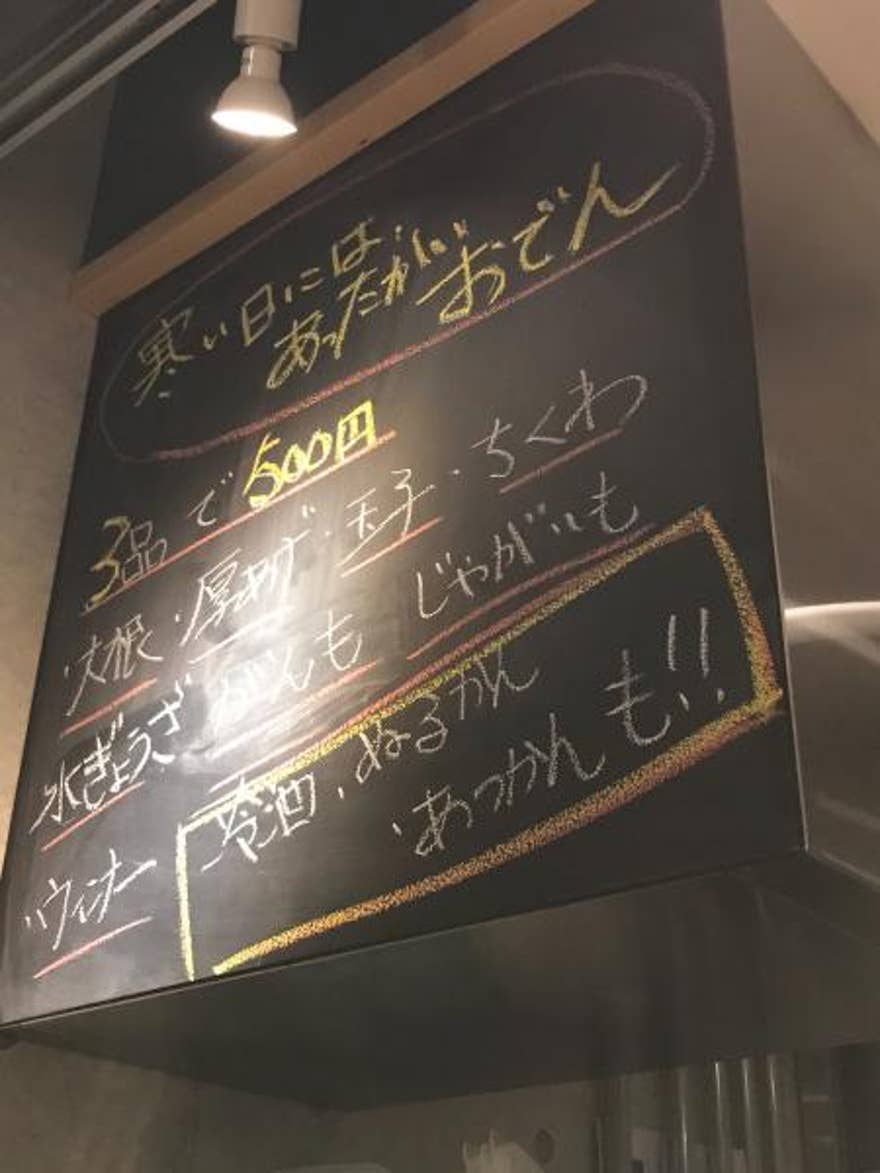 寒い日には
あったかい おでん
3品で500円
・大根・厚あげ・玉子・ちくわ
水ぎょうざ がんも じゃがいも
・ウィンナー
冷酒、ぬるかん
・あつかんも!!